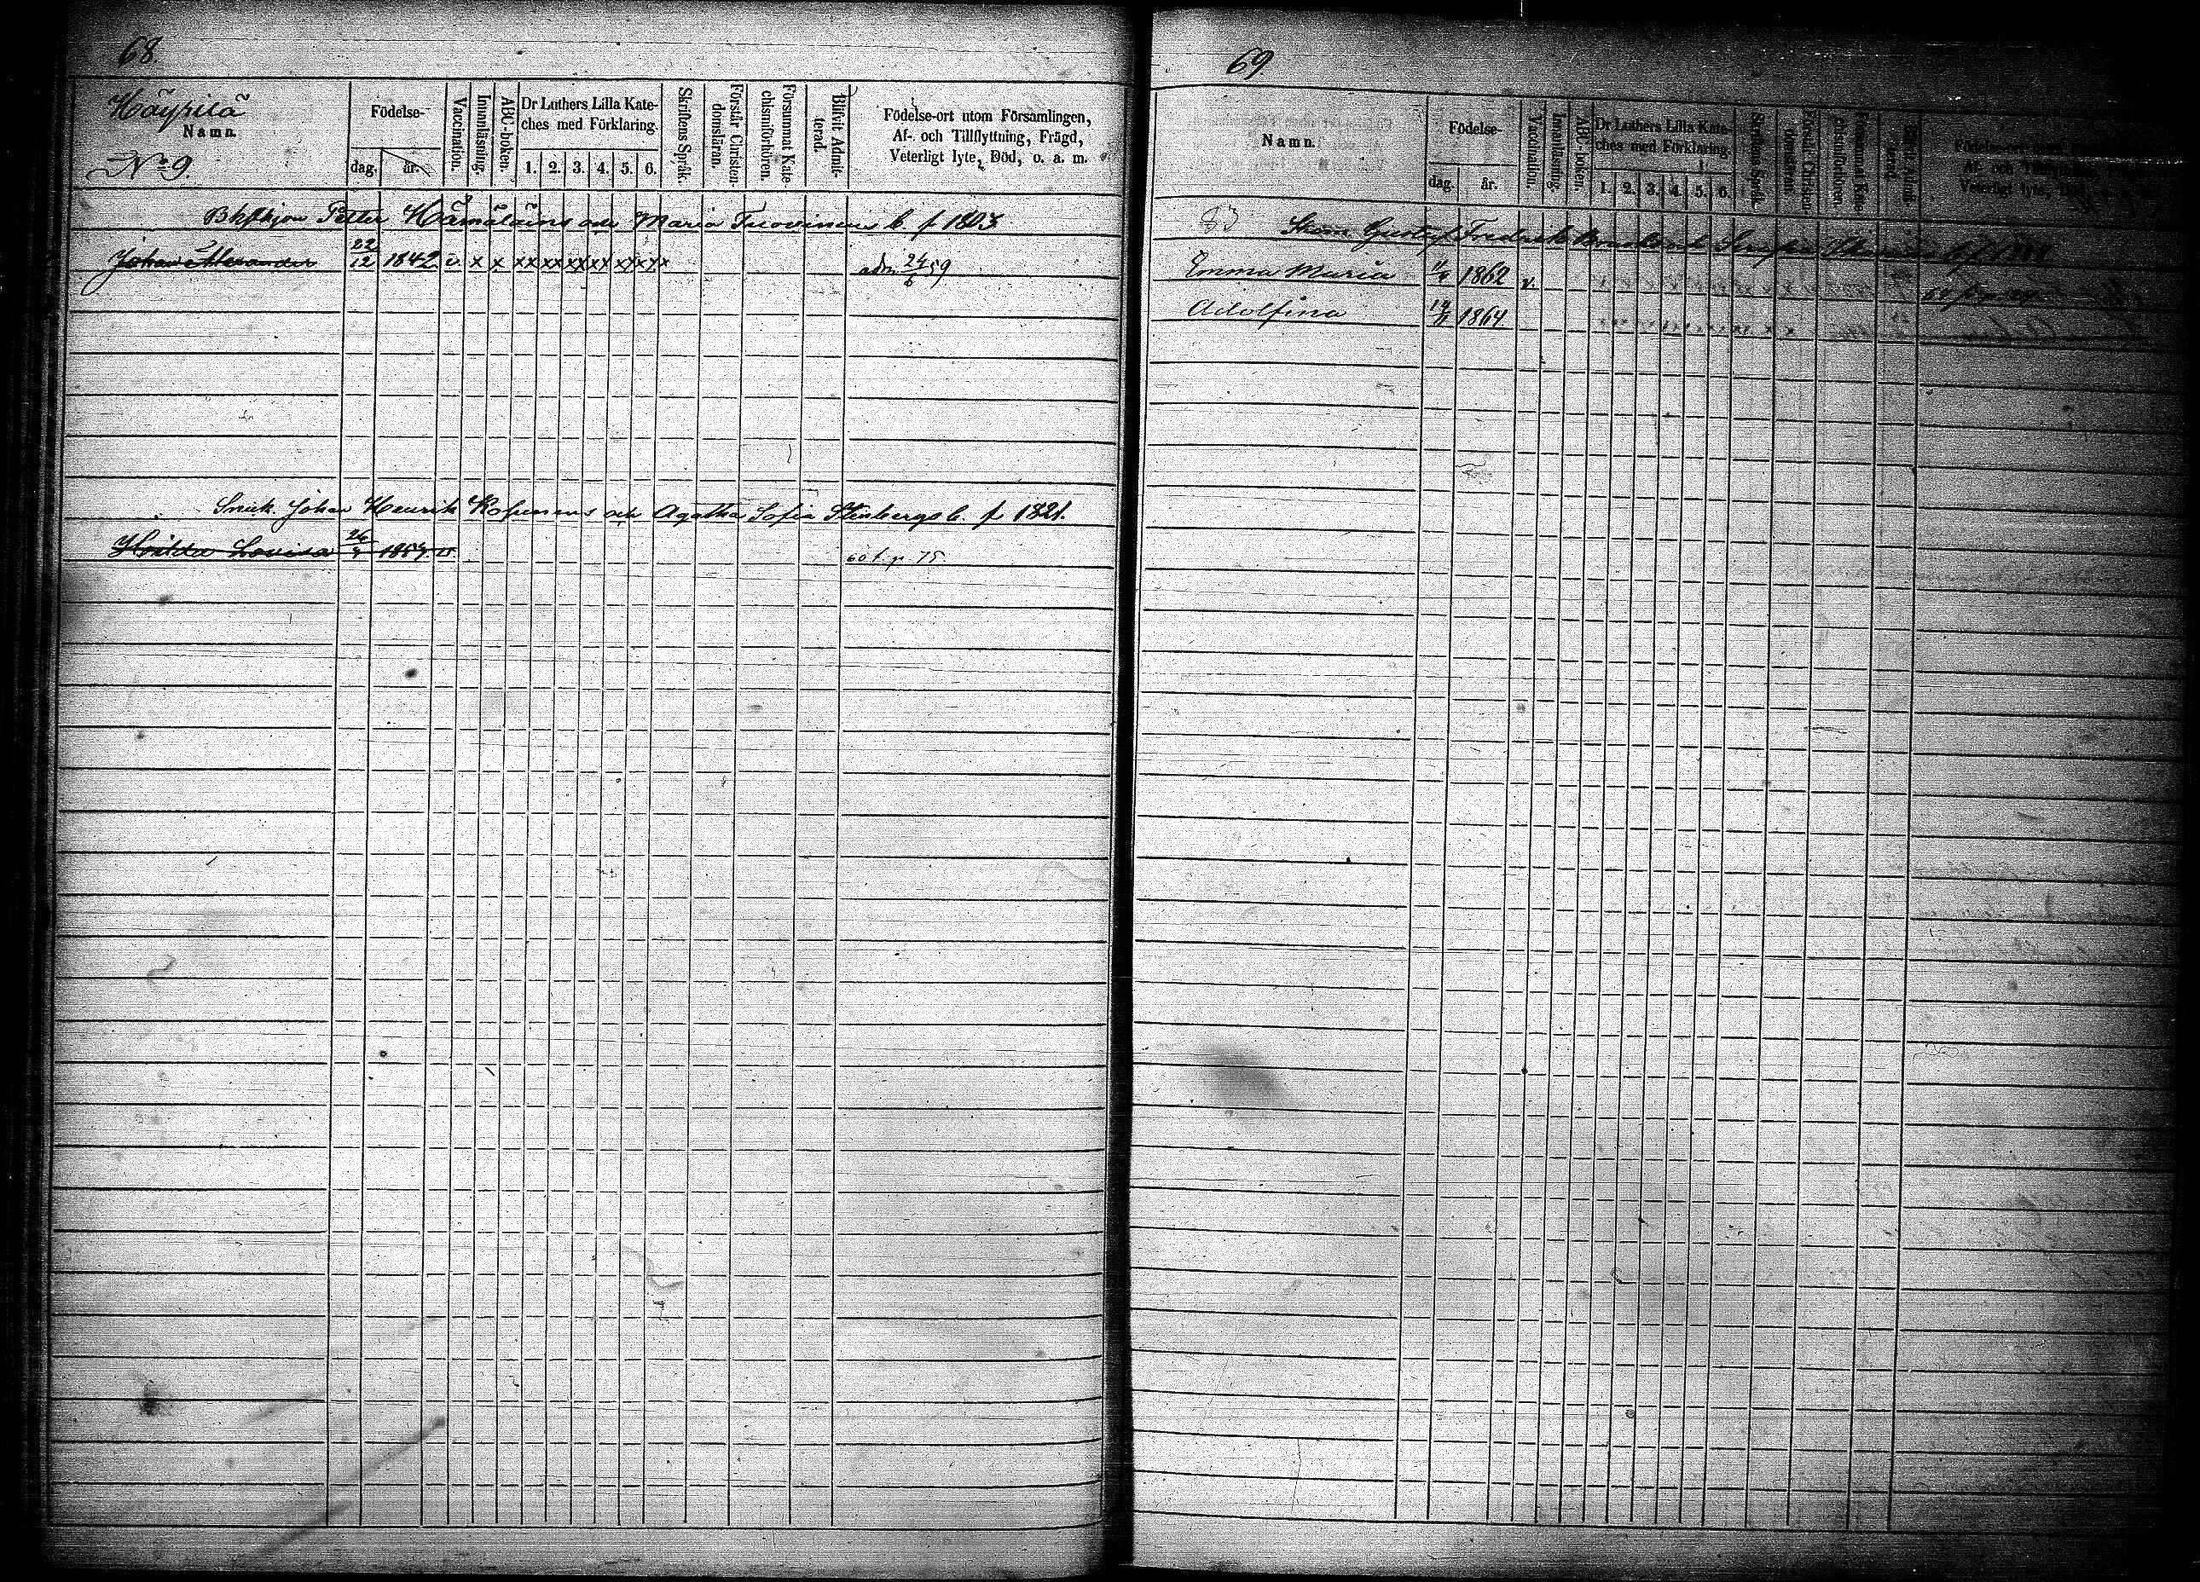 68.
Häyrilä
Namn.
No 9.
Födelse-
dag.
år.
Vaccination.
Innanläsning.
ABC-boken.
Dr Luthers Lilla Kate-
ches med Förklaring.
1. 2. 3. 4. 5. 6.
Skriftens Språk.
Förstår Christen-
domsläran.
Försummat Kate-
chismiförhören.
Blifvit Admit-
terad.
Födelse-ort utom Församlingen,
Af- och Tillflyttning, Frägd,
Veterligt lyte, Död, o. a. m.
Petter Hämäläins och Maria b. f 1803
Johan Alexander 22/12 1842 v x x xx xx xx xx xx xx x adm 24/6 59
Snick. Johan Henrik Kosunens och Agatha Sofia Stenbergs b. f 1821.
Hilda Lovisa 26 1857 v. 60 t. p 75.
69.
Namn.
Födelse-
dag. år.
Vaccination.
Innanläsning.
ABC-boken.
Dr Luthers Lilla Kate-
ches med Förklaring.
1. 2. 3. 4. 5. 6.
Skriftens Språk.
Förstår Christen-
domsläran.
Försummat Kate-
chismiförhören.
Födelse-ort
Af- och
Veterligt lyte,
Gustaf Fredrik
Emma Maria 1862 v.
Adolfina 1864